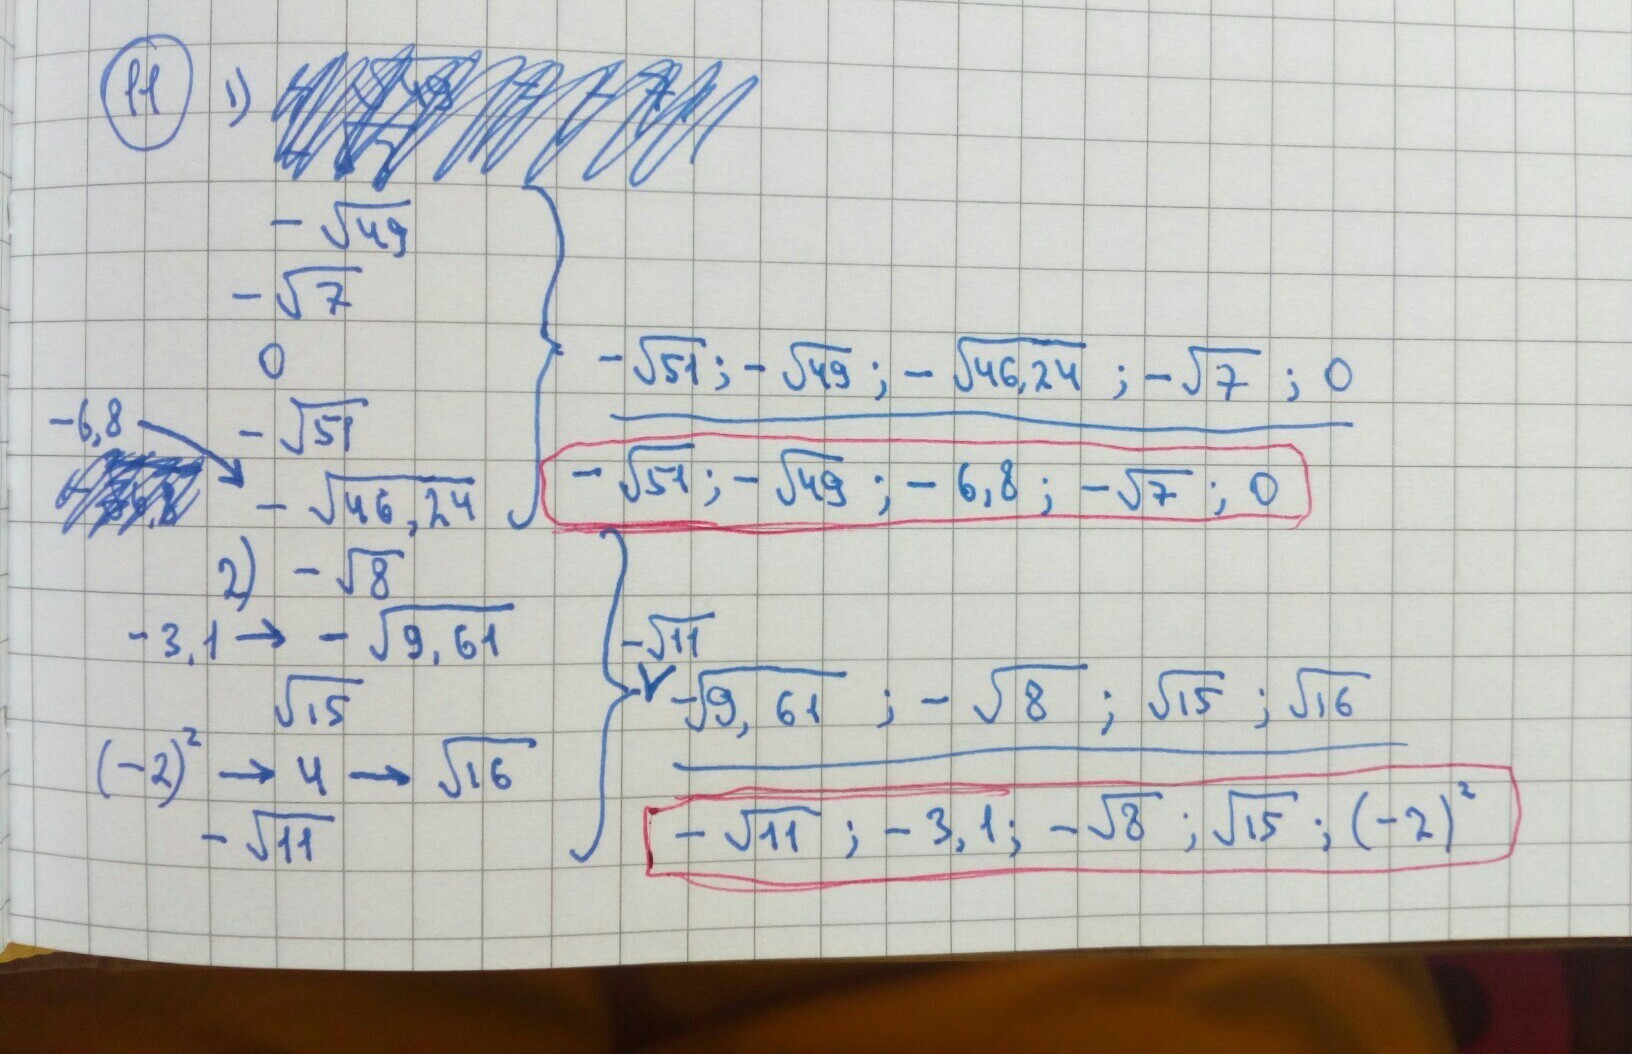 11 1)
- √49
- √7
0
-6,8
- √51
- √46,24
- √51 ; - √49 ; - √46,24 ; - √7 ; 0
- √51 ; - √49 ; - 6,8 ; - √7 ; 0
2) - √8
-3,1 → - √9,61
√15
(-2)² → 4 → √16
- √11
- √11
- √9,61 ; - √8 ; √15 ; √16
- √11 ; - 3,1 ; - √8 ; √15 ; (-2)²